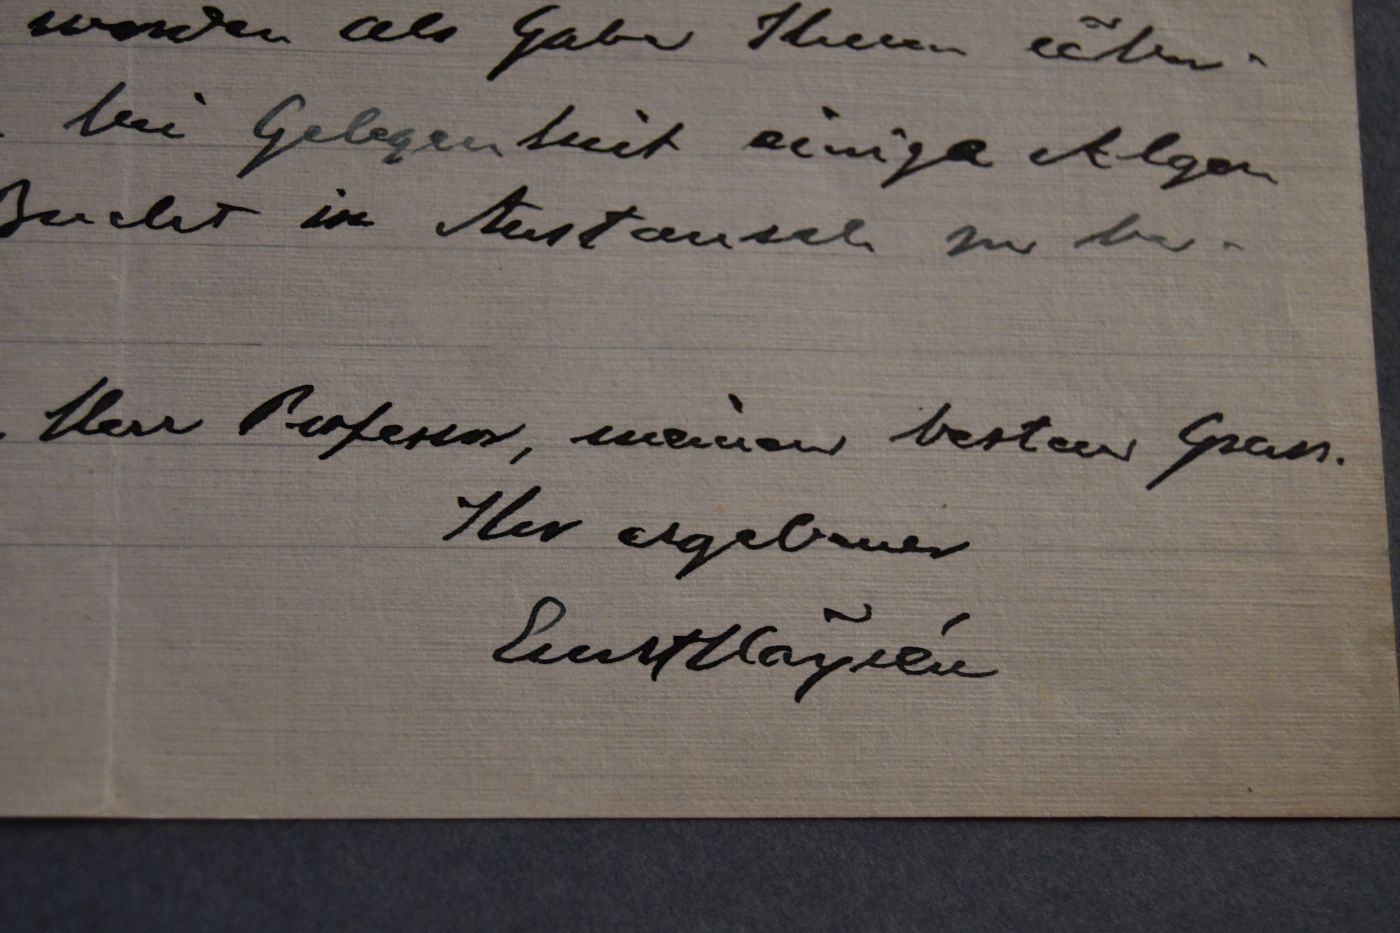 werden als Gabe Ihnen über-
bei Gelegenheit einige Algen
Bucht in Austausch zu be-
Herr Professor, meinen besten Gruss.
Ihr ergebener
Ernst Häyrén